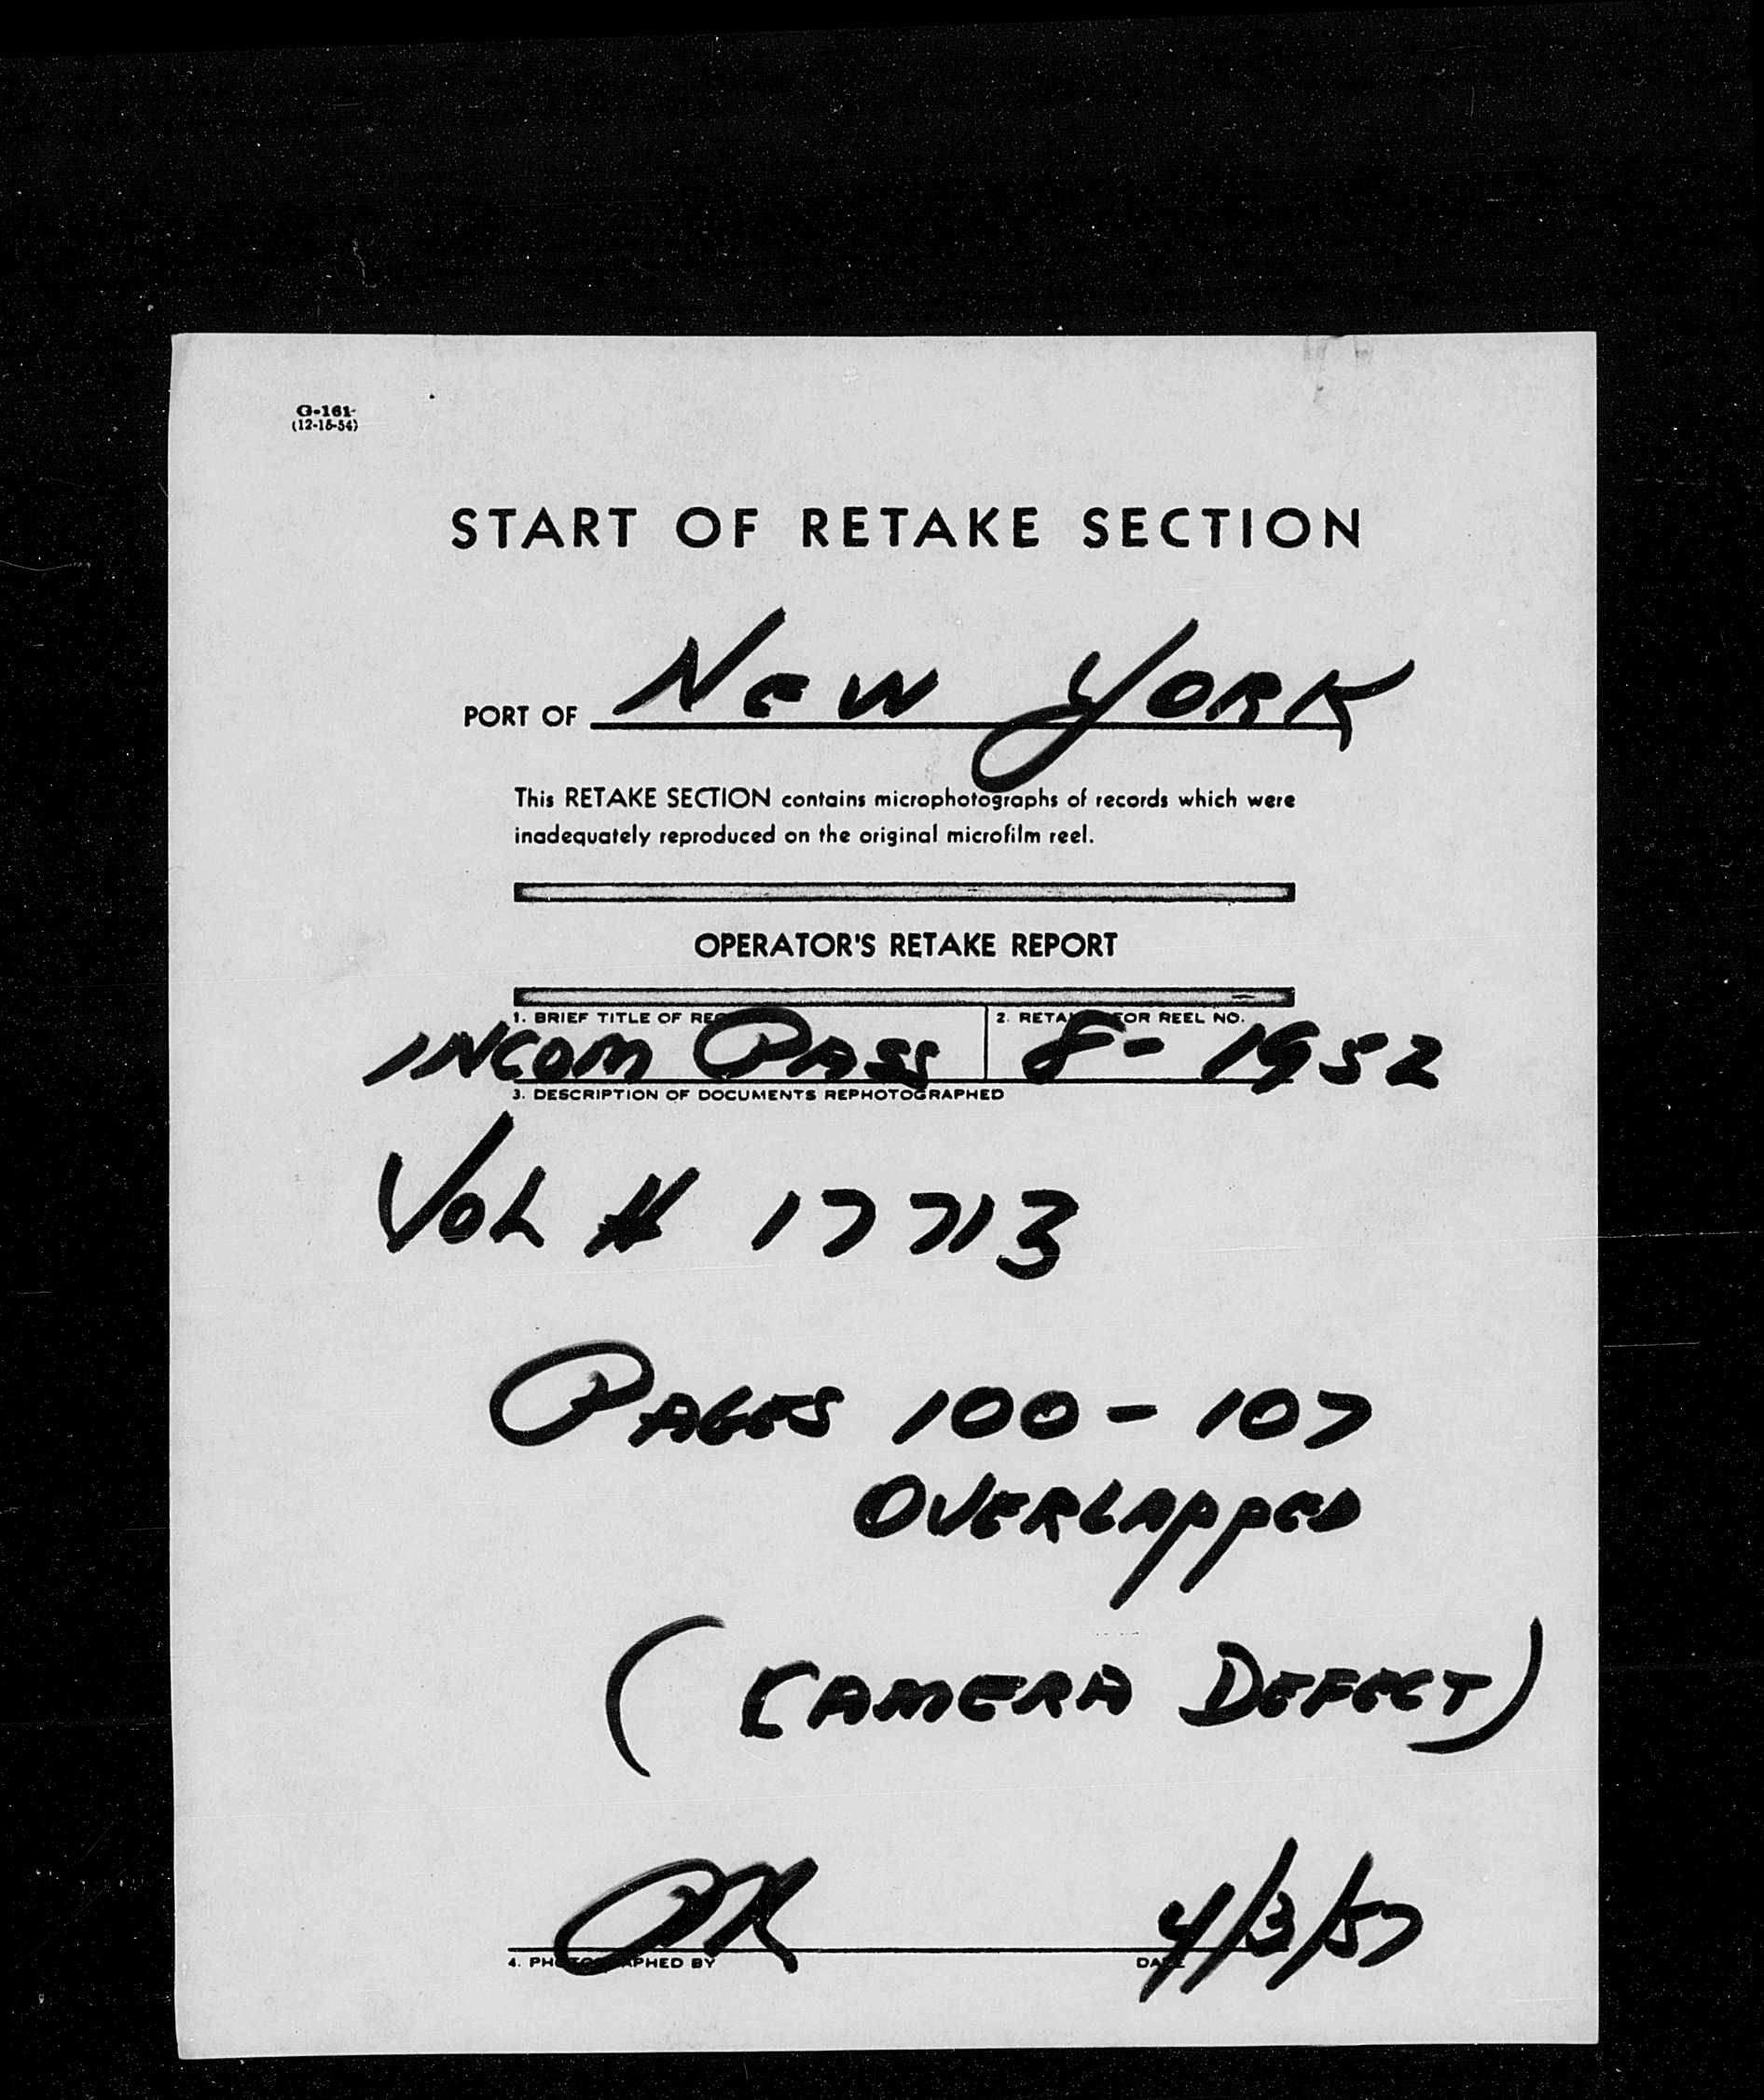 G-161-
(12-15-54)
START OF RETAKE SECTION
PORT OF New YORK
This RETAKE SECTION contains microphotographs of records which were
inadequately reproduced on the original microfilm reel.
OPERATOR'S RETAKE REPORT
1. BRIEF TITLE OF 2. FOR REEL NO.
INCOM PASS 8- 1952
3. DESCRIPTION OF DOCUMENTS REPHOTOGRAPHED
VOL # 17713
PAGES 100-107
OVERLAPPED
(CAMERA DEFECT)
4/3/57
4. PHOTOGRAPHED BY DATE